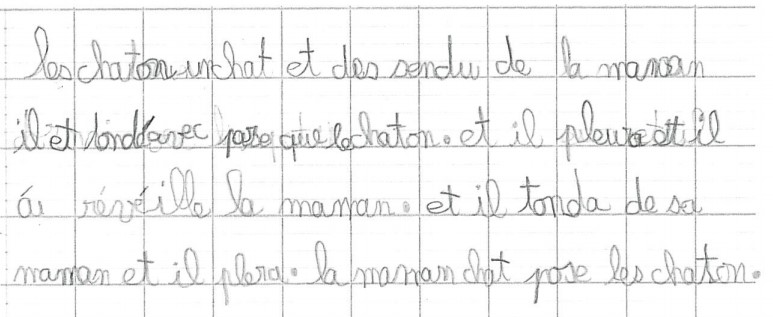 les chaton un chat et des sendu de la maman
il et donddavec pose que lechaton. et il pleure ott il
a réveille la maman. et il tonda de sa
maman et il plera. la maman chat pose les chaton.